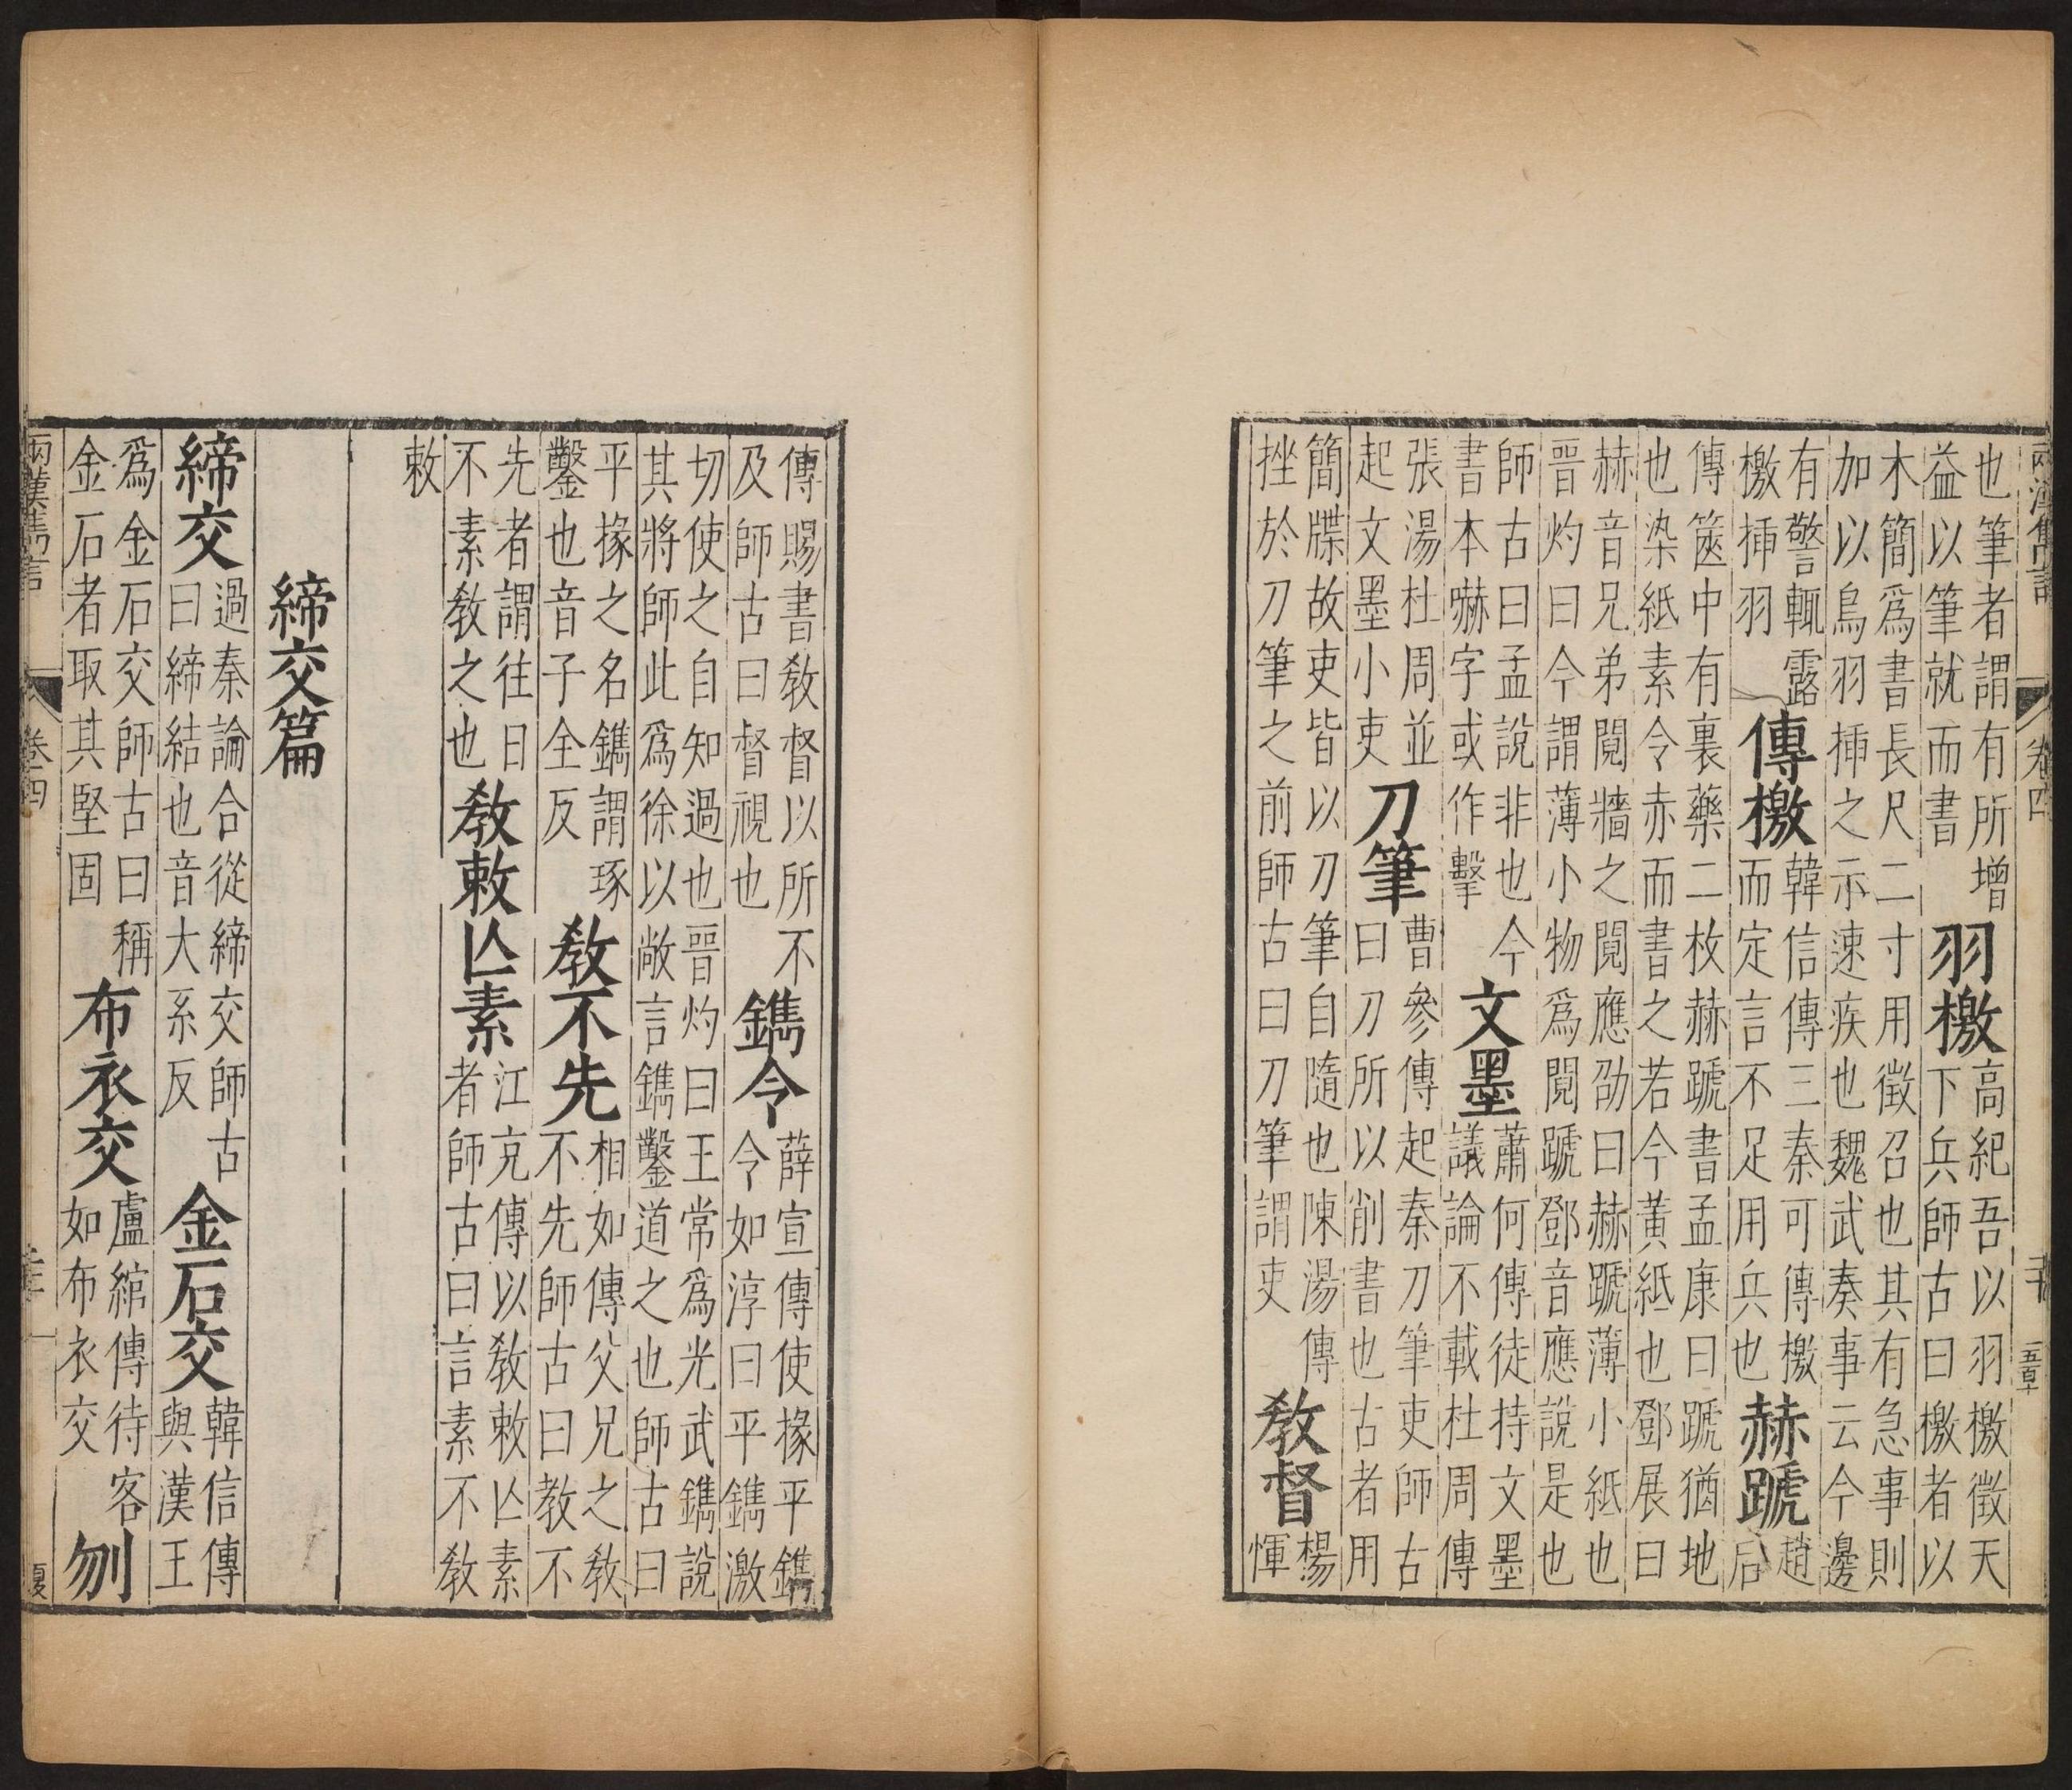 兩漢雋言 卷四 二十
也筆者謂有所增
益以筆就而書
羽檄
高紀吾以羽檄徵天
下兵師古曰檄者以
木簡爲書長尺二寸用徵召也其有急事則
加以鳥羽挿之示速疾也魏武奏事云今邊
有警輒露
檄挿羽
傳檄
韓信傳三秦可傳檄
而定言不足用兵也
赫蹏
趙
后
傳篋中有裹藥二枚赫蹏書孟康曰蹏猶地
也染紙素令赤而書之若今黃紙也鄧展曰
赫音兄弟鬩牆之鬩應劭曰赫蹏薄小紙也
晉灼曰今謂薄小物爲鬩蹏鄧音應說是也
師古曰孟說非也今
書本嚇字或作擊
文墨
蕭何傳徒持文墨
議論不載杜周傳
張湯杜周並
起文墨小吏
刀筆
曹參傳起秦刀筆吏師古
曰刀所以削書也古者用
簡牒故吏皆以刀筆自隨也陳湯傳
挫於刀筆之前師古曰刀筆謂吏
教督
楊
惲
傳賜書教督以所不
及師古曰督視也
鐫令
薛宣傳使掾平鐫
令如淳曰平鐫激
切使之自知過也晉灼曰王常爲光武鐫說
其將師此爲徐以敞言鐫鑿道之也師古曰
平掾之名鐫謂琢
鑿也音子全反
教不先
相如傳父兄之教
不先師古曰教不
先者謂往日
不素教之也
教敕亾素
江充傳以教敕亾素
者師古曰言素不教
敕
締交篇
締交
過秦論合從締交師古
曰締結也音大系反
金石交
韓信傳
與漢王
爲金石交師古曰稱
金石者取其堅固
布衣交
盧綰傳待客
如布衣交
刎
兩漢雋言 卷四